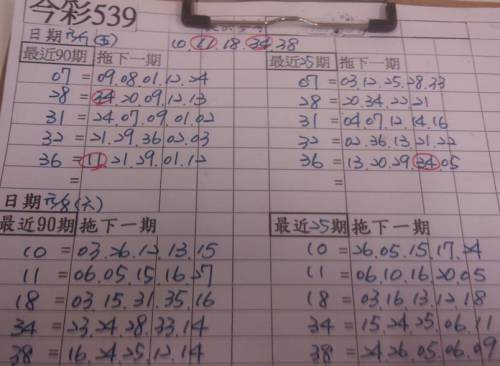 今彩539
日期 (五) 10.11.18.34.38
最近90期 拖下一期 最近25期 拖下一期
07 = 09.08.01.12.24 07 = 03.12.25.28.33
28 = 34.20.09.12.13 28 = 20.34.22.21
31 = 24.07.09.01.02 31 = 04.07.12.14.16
32 = 21.29.36.02.03 32 = 02.36.13.21.22
36 = 11.21.29.01.12 36 = 13.20.29.34.05
= =
日期 (六)
最近90期 拖下一期 最近25期 拖下一期
10 = 03.26.12.13.15 10 = 26.05.15.17.24
11 = 06.05.15.16.27 11 = 06.10.16.20.05
18 = 03.15.31.35.16 18 = 03.16.13.12.18
34 = 23.24.28.33.14 34 = 15.24.25.06.11
38 = 16.24.25.12.14 38 = 24.26.05.06.09